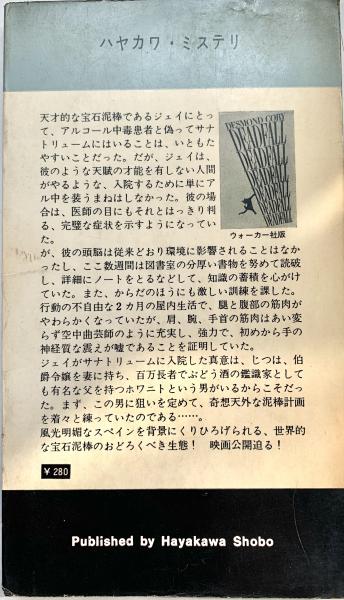 ハヤカワ・ミステリ
天才的な宝石泥棒であるジェイにとっ
て、アルコール中毒患者と偽ってサナ
トリュームにはいることは、いともた
やすいことだった。だが、ジェイは、
彼のような天賦の才能を有しない人間
がやるような、入院するために単にア
ル中を装うまねはしなかった。彼の場
合は、医師の目にもそれとはっきり判
る、完璧な症状を示すようになってい
た。
DESMOND CORY
DEADFALL
DEADFALL
DEADFALL
DEADFALL
ウォーカー社版
が、彼の頭脳は従来どおり環境に影響されることはなか
ったし、ここ数週間は図書室の分厚い書物を努めて読破
し、詳細にノートをとるなどして、知識の蓄積を心がけ
ていた。また、からだのほうにも激しい訓練を課した。
行動の不自由な2カ月の屋内生活で、腿と腹部の筋肉が
やわらかくなっていたが、肩、腕、手首の筋肉はあい変
らず空中曲芸師のように充実し、強力で、初めから手の
神経質な震えが嘘であることを証明していた。
ジェイがサナトリュームに入院した真意は、じつは、伯
爵令嬢を妻に持ち、百万長者でぶどう酒の鑑識家として
も有名な父を持つホワニトという男がいるからこそだっ
た。まず、この男に狙いを定めて、奇想天外な泥棒計画
を着々と練っていたのである……。
風光明媚なスペインを背景にくりひろげられる、世界的
な宝石泥棒のおどろくべき生態！ 映画公開迫る！
￥280
Published by Hayakawa Shobo